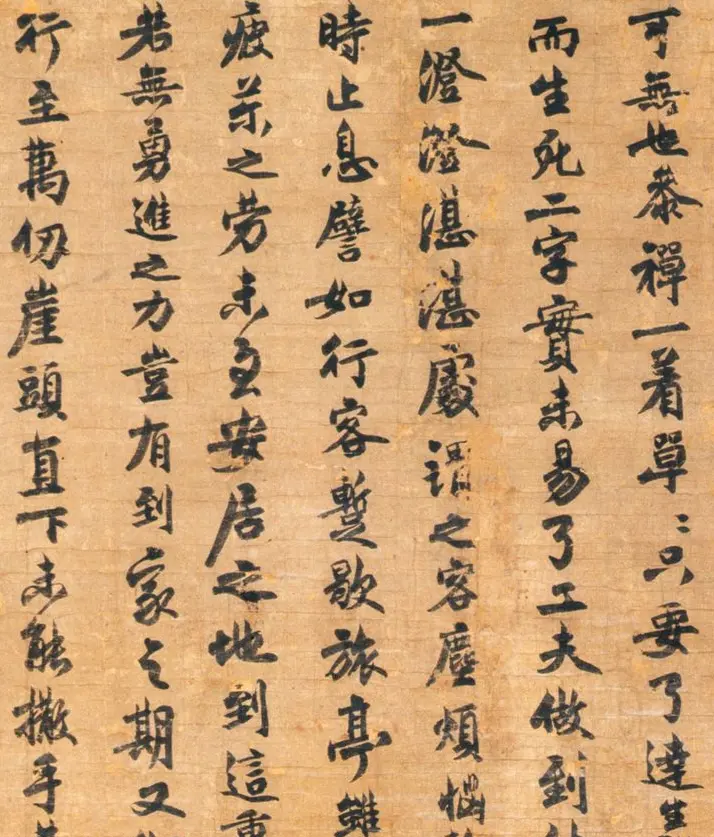 可無也叅禪一着單〻只要了達生
而生死二字實未易了工夫做到
一澄澄湛湛處謂之客塵煩惱
時止息譬如行客蹔歇旅亭雖
疲苶之勞未至安居之地到這重
若無勇進之力豈有到家之期又
行至萬仞崖頭直下未能撒手